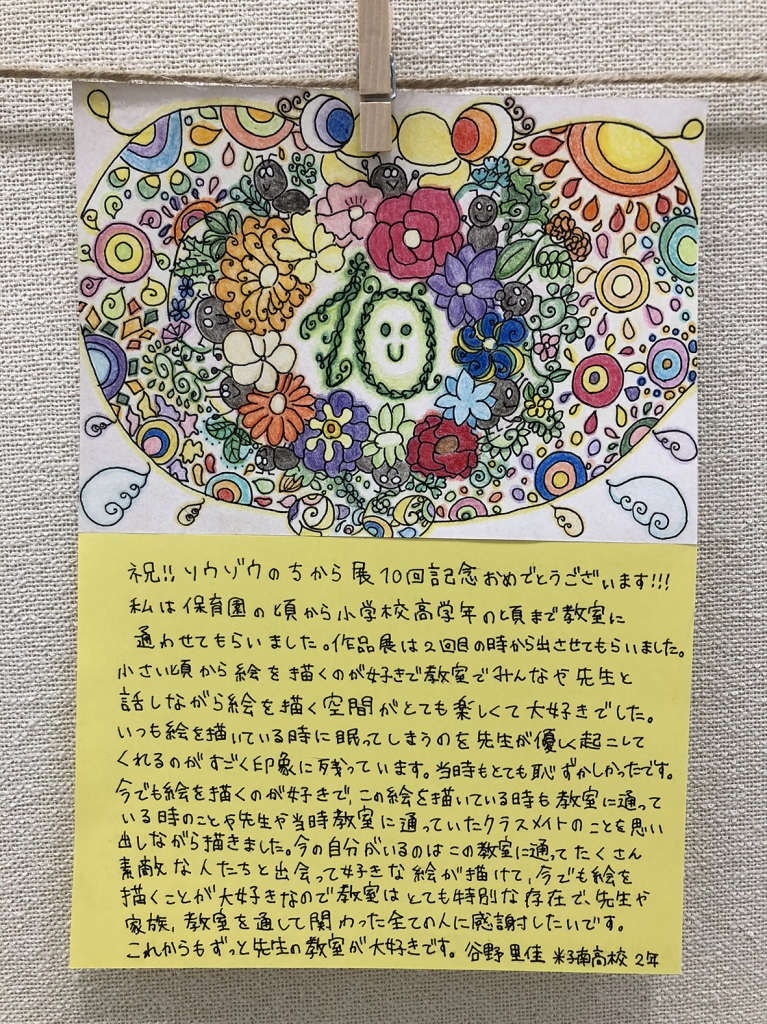 10
祝!! ソウゾウのちから展10回記念おめでとうございます!!!
私は保育園の頃から小学校高学年の頃まで教室に
通わせてもらいました。作品展は2回目の時から出させてもらいました。
小さい頃から絵を描くのが好きで教室でみんなや先生と
話しながら絵を描く空間がとても楽しくて大好きでした。
いつも絵を描いている時に眠ってしまうのを先生が優しく起こして
くれるのがすごく印象に残っています。当時もとても恥ずかしかったです。
今でも絵を描くのが好きで、この絵を描いている時も教室に通って
いる時のことや先生や当時教室に通っていたクラスメイトのことを思い
出しながら描きました。今の自分がいるのはこの教室に通ってたくさん
素敵な人たちと出会って好きな絵が描けて、今でも絵を
描くことが大好きなので教室はとても特別な存在で、先生や
家族、教室を通して関わった全ての人に感謝したいです。
これからもずっと先生の教室が大好きです。谷野里佳 米子南高校2年